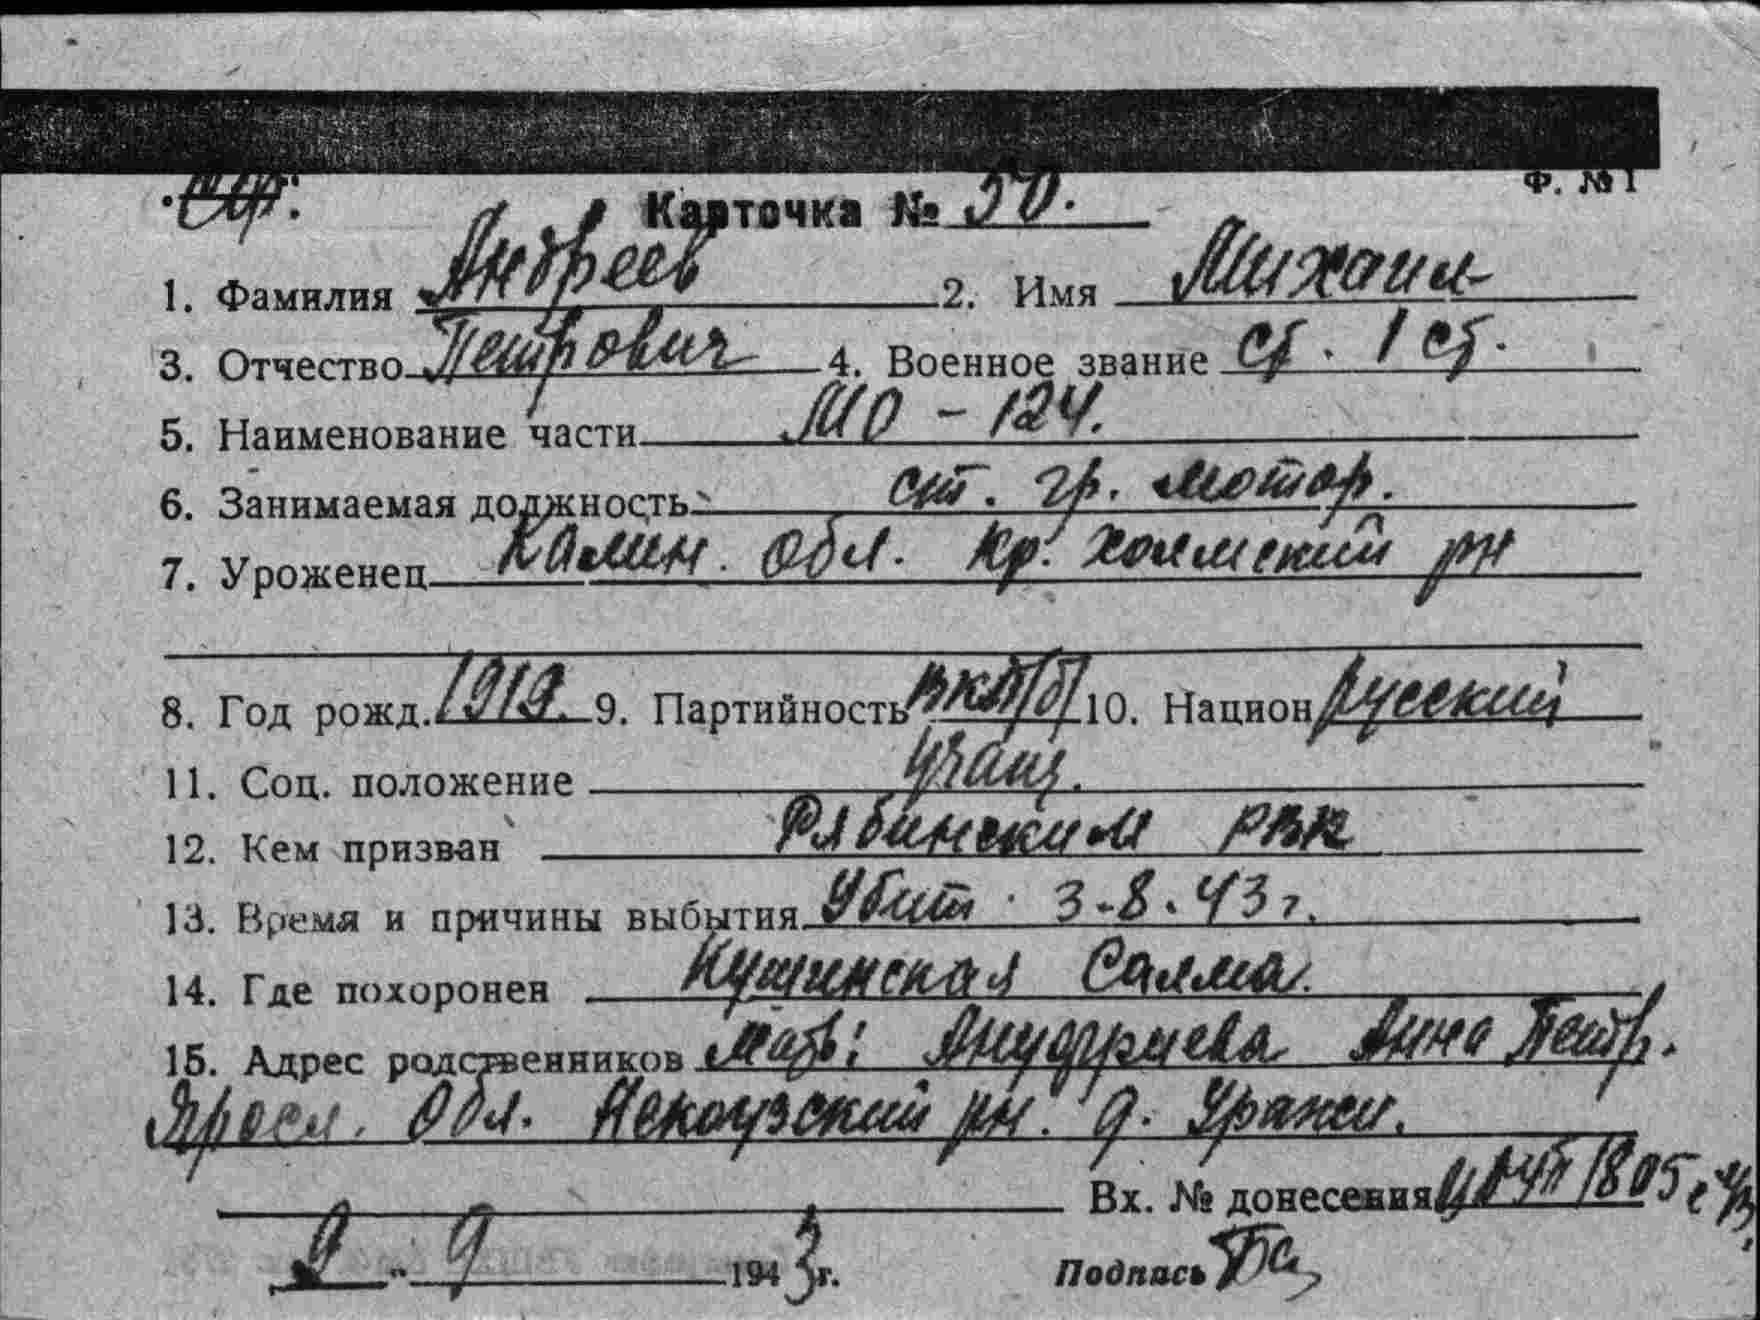 Ф. № 1
Карточка № 50.
1. Фамилия Андреев 2. Имя Михаил
3. Отчество Петрович 4. Военное звание ст. 1 ст.
5. Наименование части МО - 124.
6. Занимаемая должность ст. гр. мотор.
7. Уроженец Калин. обл. Кр. Холмский рн
8. Год рожд. 1919. 9. Партийность ВКП/б/ 10. Национ русский
11. Соц. положение учащ.
12. Кем призван Рябинским РВК
13. Время и причины выбытия Убит 3-8.43 г.
14. Где похоронен Кушинская Салма.
15. Адрес родственников Мать: Ануфриева Анна Петр.
Яросл. обл. Некоузский рн. д. Уражи.
Вх. № донесения 1805
9 " 9 1943 г. Подпись